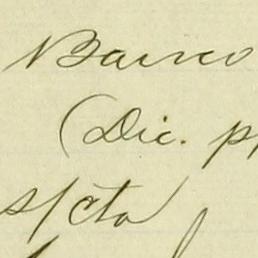 Banco
(Dic. p
s/cta